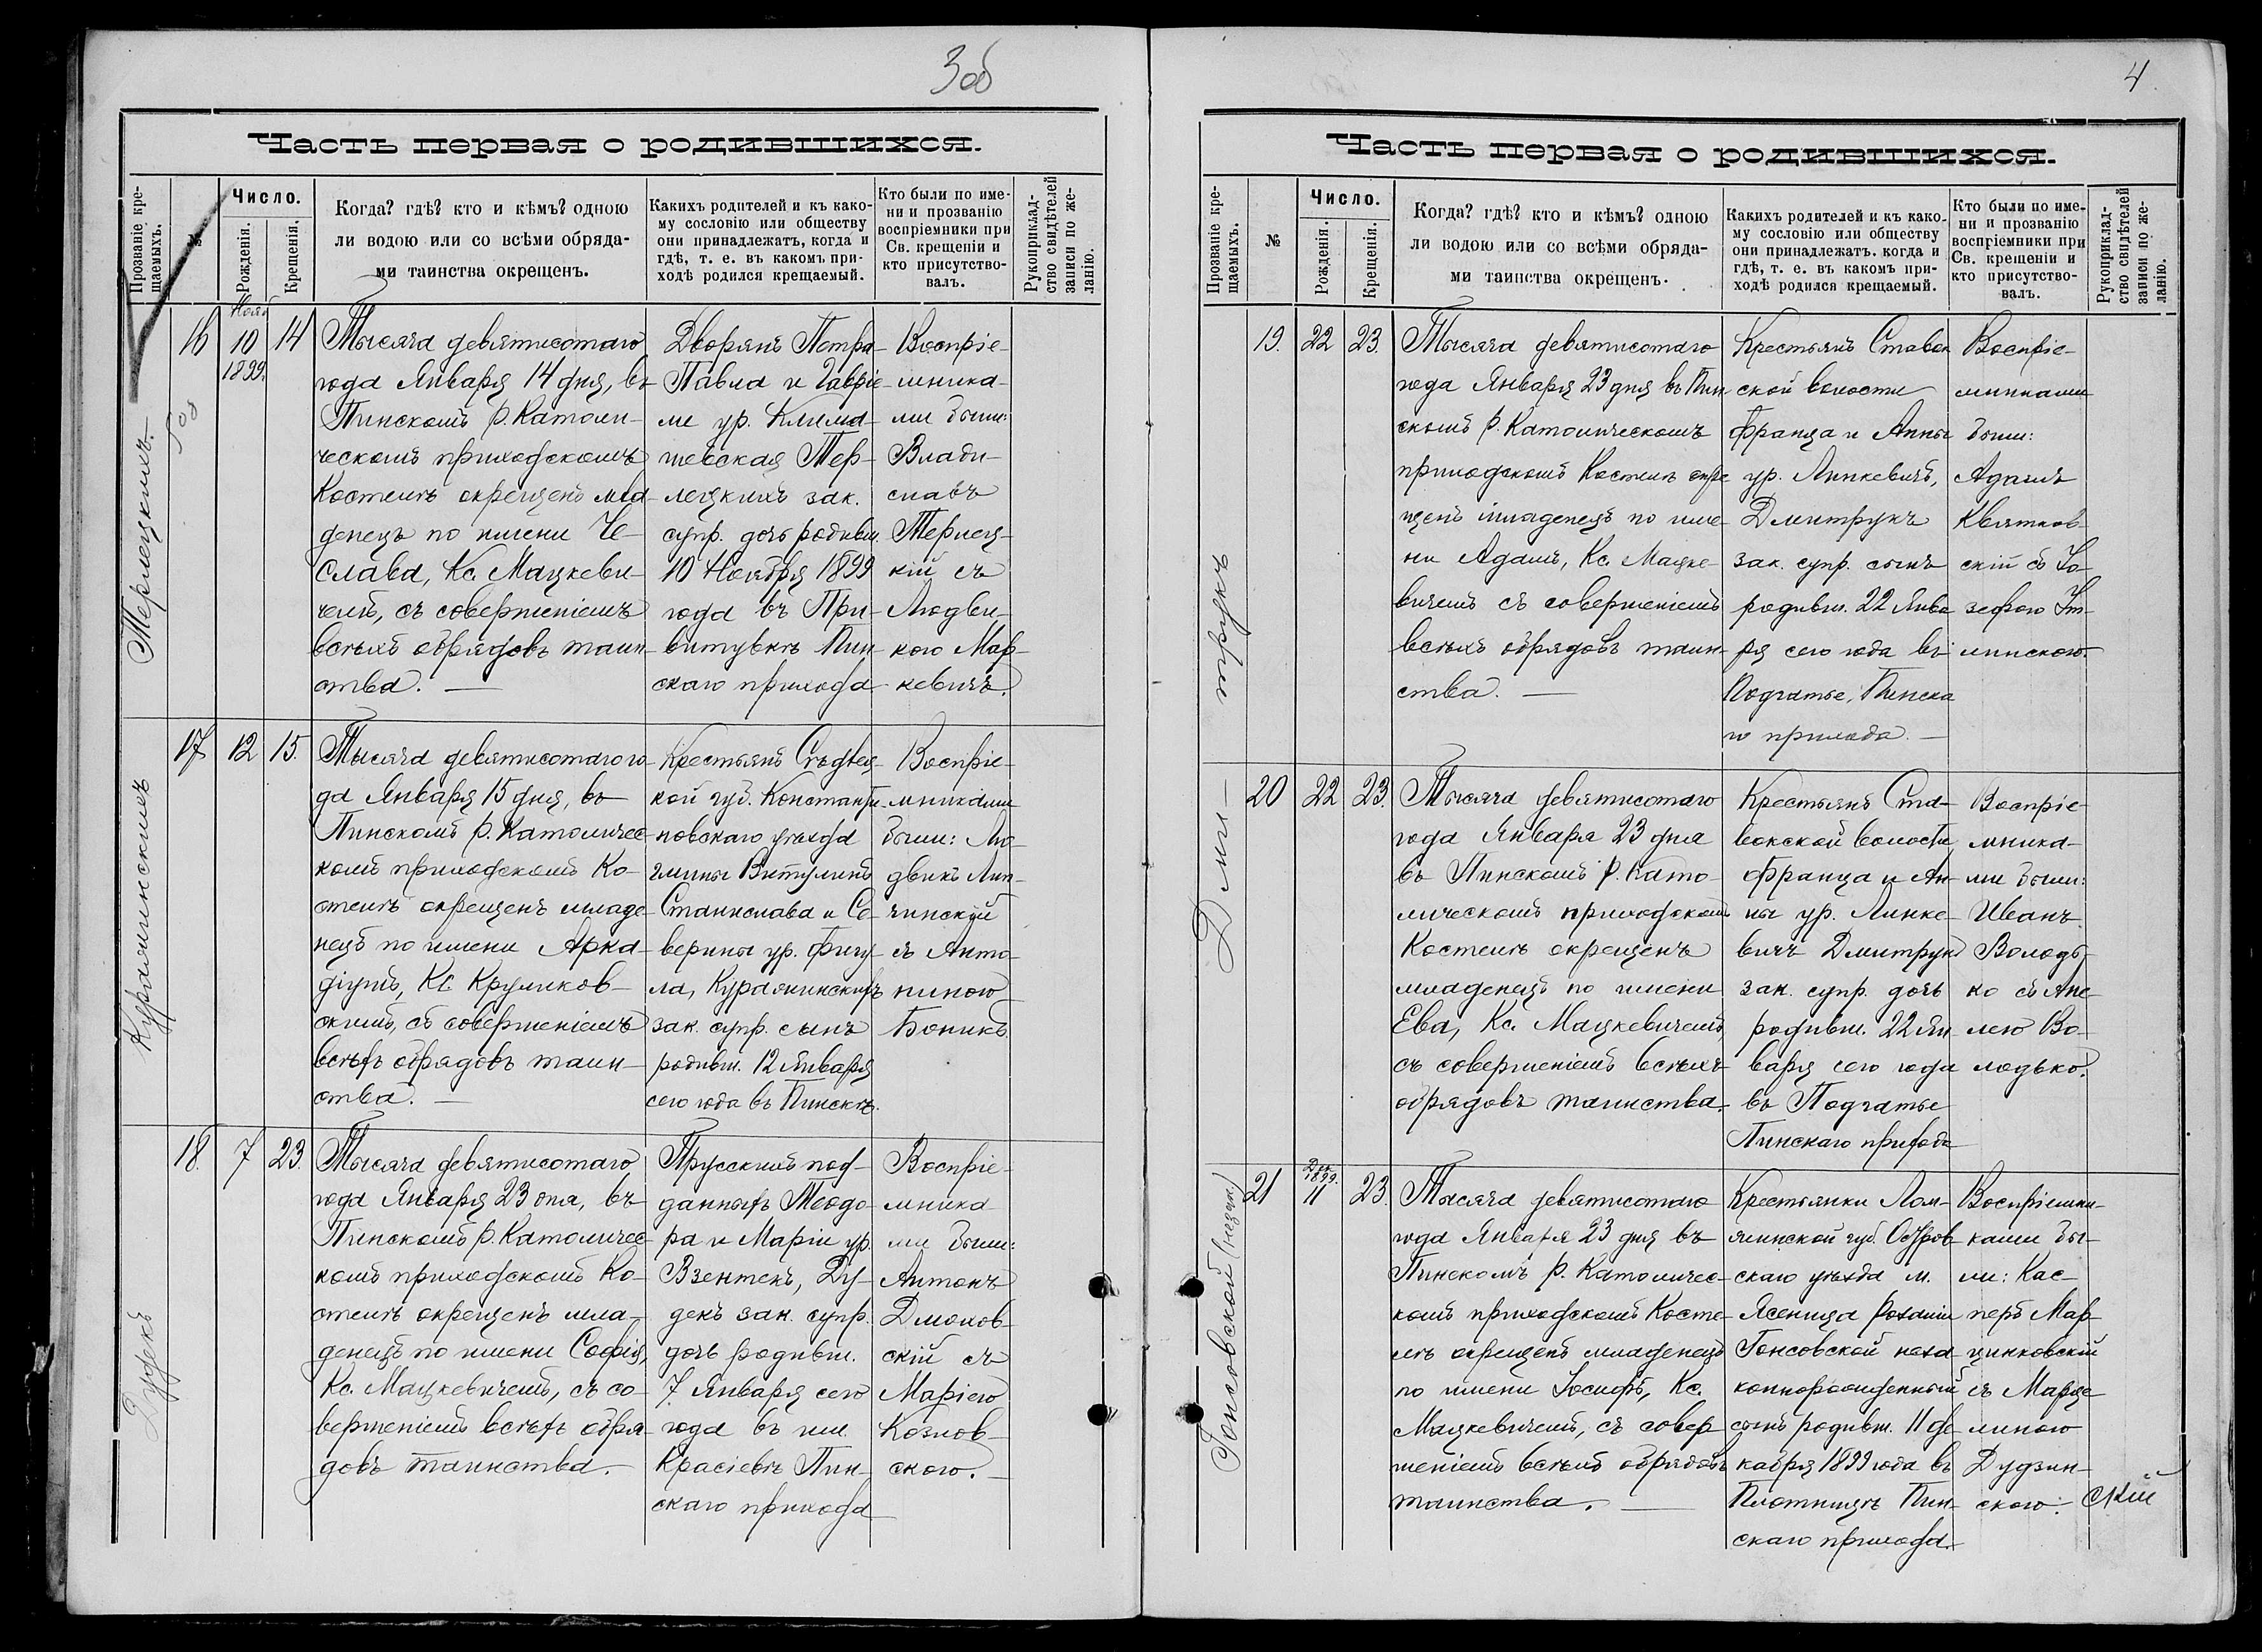 3об
Часть первая о родившихся.
Прозваніе кре-
щаемыхъ.
№
Число.
Рожденія.
Крещенія.
Когда? гдѣ? кто и кѣмъ? одною
ли водою или со всѣми обряда-
ми таинства окрещенъ.
Какихъ родителей и къ како-
му сословію или обществу
они принадлежатъ, когда и
гдѣ, т. е. въ какомъ при-
ходѣ родился крещаемый.
Кто были по име-
ни и прозванію
воспріемники при
Св. крещеніи и
кто присутство-
валъ.
Рукоприклад-
ство свидѣтелей
записи по же-
ланію.
Терлецкихъ.
16
Нояб
10
1899.
14
Тысяча девятисотаго
года Января 14 дня, въ
Пинскомъ р. Католи-
ческомъ приходскомъ
Костелѣ окрещенъ мла-
денецъ по имени Че-
слава, Кс. Мацкеви-
чемъ, съ совершеніемъ
всѣхъ обрядовъ таин-
ства.
Дворянъ Петра-
Павла и Габріе-
ли ур. Клима-
шевская Тер-
лецкихъ зак.
супр. дочь родивш.
10 Ноября 1899
года въ При-
витувкѣ Пин-
скаго прихода
Воспріе-
мника-
ми были:
Влади-
славъ
Терлец-
кій съ
Людви-
кою Мар-
кевичъ.
17
12
15.
Тысяча девятисотаго го-
да Января 15 дня, въ
Пинскомъ р. Католичес-
комъ приходскомъ Ко-
стелѣ окрещенъ младе-
нецъ по имени Арка-
діушъ, Кс. Круликов-
скимъ, съ совершеніемъ
всѣхъ обрядовъ таин-
ства.
Крестьянъ Сѣдлец-
кой губ. Константи-
новскаго уѣзда
гмины Витулинъ
Станислава и Се-
верины ур. Фигу-
ла,
зак. супр. сынъ
родивш. 12 Января
сего года въ Пинскѣ.
Воспріе-
мниками
были: Лю-
двикъ Лип-
чинскій
съ Анто-
ниною
Боникъ.
Дудекъ
18.
7
23.
Тысяча девятисотаго
года Января 23 дня, въ
Пинскомъ р. Католичес-
комъ приходскомъ Ко-
стелѣ окрещенъ мла-
денецъ по имени Софія,
Кс. Мацкевичемъ, съ со-
вершеніемъ всѣхъ обря-
довъ таинства.
Прусскихъ под-
данныхъ Теодо-
ра и Маріи ур.
Взентекъ, Ду-
декъ зак. супр.
дочь родивш.
7 Января сего
года въ им.
Красіевѣ Пин-
скаго прихода
Воспріе-
мника-
ми были:
Антонъ
Дмохов-
скій съ
Маріею
Козлов-
скою.
4
Часть первая о родившихся.
Прозваніе кре-
щаемыхъ.
№
Число.
Рожденія.
Крещенія.
Когда? гдѣ? кто и кѣмъ? одною
ли водою или со всѣми обряда-
ми таинства окрещенъ.
Какихъ родителей и къ како-
му сословію или обществу
они принадлежатъ. когда и
гдѣ, т. е. въ какомъ при-
ходѣ родился крещаемый.
Кто были по име-
ни и прозванію
воспріемники при
Св. крещеніи и
кто присутство-
валъ.
Рукоприклад-
ство свидѣтелей
записи по же-
ланію.
Дми- трукъ
19.
22
23.
Тысяча девятисотаго
года Января 23 дня въ Пин-
скомъ р. Католическомъ
приходскомъ Костелѣ окре-
щенъ младенецъ по име-
ни Адамъ, Кс. Мацке-
вичемъ съ совершеніемъ
всѣхъ обрядовъ таин-
ства.
Крестьянъ Ставок-
ской волости
Франца и Анны
ур. Линкевичъ,
Дмитрукъ
зак. супр. сынъ
родивш. 22 Янва-
ря сего года въ
Подгатье, Пинска-
го прихода.
Воспріе-
мниками
были:
Адамъ
Квятков-
скій съ Іо-
зефою
20
22
23.
Тысяча девятисотаго
года Января 23 дня
въ Пинскомъ р. Като-
лическомъ приходскомъ
Костелѣ окрещенъ
младенецъ по имени
Ева, Кс. Мацкевичемъ,
съ совершеніемъ всѣхъ
обрядовъ таинства.
Крестьянъ Ста-
вокской волости,
Франца и Ан-
ны ур. Линке-
вичъ Дмитрукъ
зак. супр. дочь
родивш. 22 Ян-
варя сего года
въ Подгатье
Пинскаго прихода
Воспріе-
мника-
ми были:
Иванъ
Володь-
ко съ Ане-
лею Во-
лодько.
Гонсовской (незак.)
21
Дек.
1899.
11
23.
Тысяча девятисотаго
года Января 23 дня въ
Пинскомъ р. Католичес-
комъ приходскомъ Косте-
лѣ окрещенъ младенецъ
по имени Іосифъ, Кс.
Мацкевичемъ, съ совер-
шеніемъ всѣхъ обрядовъ
таинства.
Крестьянки Лом-
жинской губ. Остров-
скаго уѣзда м.
Ясеница Розаліи
Гонсовской неза-
коннорожденный
сынъ родивш. 11 де-
кабря 1899 года въ
Плотницѣ Пин-
скаго прихода.
Воспріемни-
ками бы-
ли: Кас-
перъ Мар-
цинковскій
съ Марце-
линою
Дудзин-
скою.